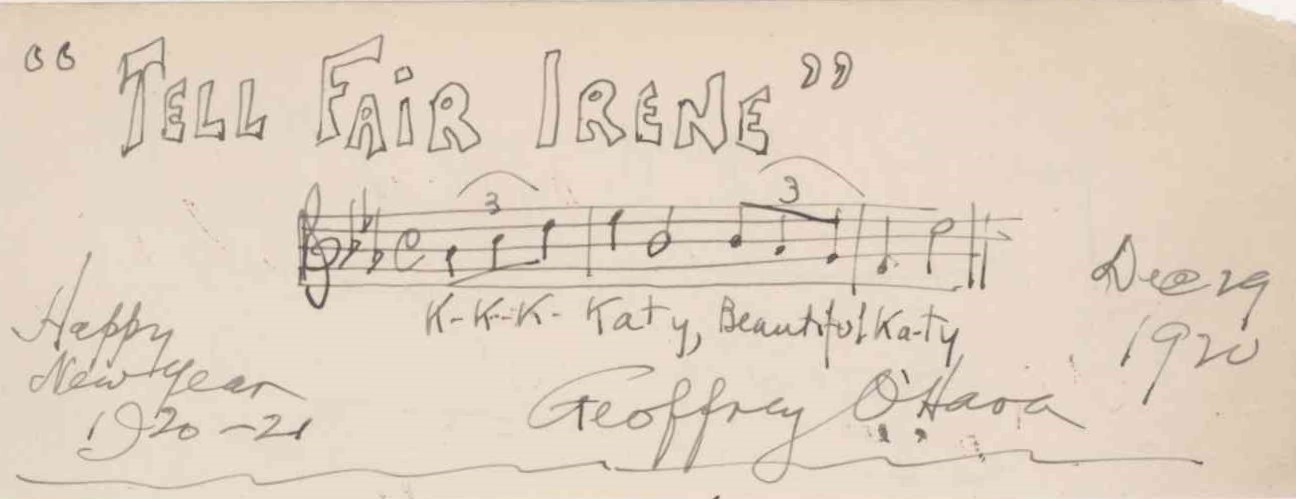 “ TELL FAIR IRENE ”
3 3
K-K-K- Katy, Beautiful Ka-ty
Happy
New Year
1920-21
Geoffrey O'Hara
Dec 29
1920